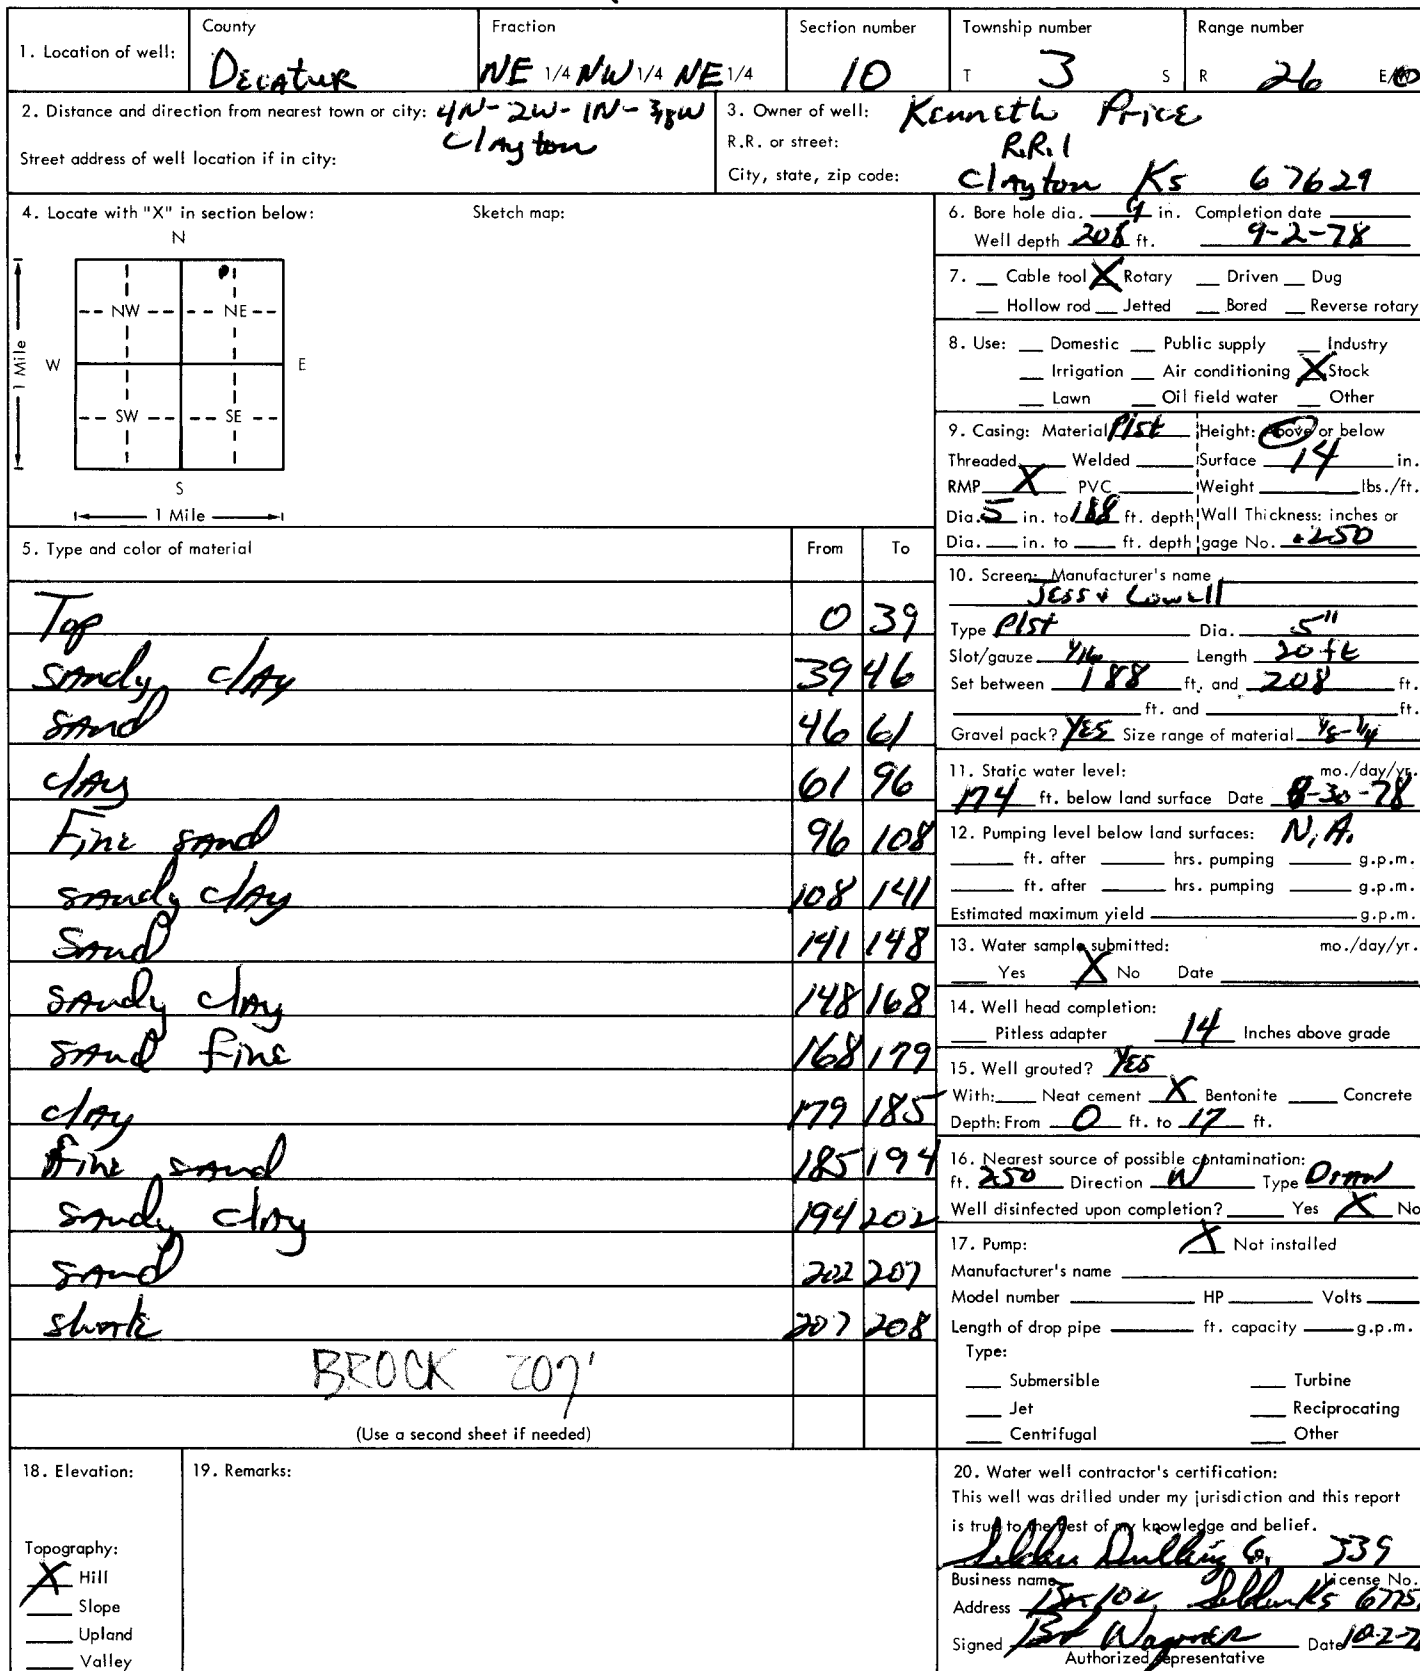 1. Location of well: County Decatur Fraction NE 1/4 NW 1/4 NE 1/4 Section number 10 Township number T 3 S Range number R 26 E/W
2. Distance and direction from nearest town or city: 4N-2W-1N-3/8W
Clayton
Street address of well location if in city:
3. Owner of well: Kenneth Price
R.R. or street: R.R.1
City, state, zip code: Clayton Ks 67629
4. Locate with "X" in section below: Sketch map:
N
NW NE
W E
1 Mile
SW SE
S
1 Mile
5. Type and color of material From To
Top 0 39
sandy clay 39 46
sand 46 61
clay 61 96
Fine sand 96 108
sandy clay 108 141
Sand 141 148
sandy clay 148 168
sand fine 168 179
clay 179 185
fine sand 185 194
sandy clay 194 202
sand 202 207
207 208
BROCK 207'
(Use a second sheet if needed)
6. Bore hole dia. 9 in. Completion date
Well depth 208 ft. 9-2-78
7. Cable tool X Rotary Driven Dug
Hollow rod Jetted Bored Reverse rotary
8. Use: Domestic Public supply Industry
Irrigation Air conditioning X Stock
Lawn Oil field water Other
9. Casing: Material Plst Height: Above or below
Threaded Welded Surface 14 in.
RMP X PVC Weight lbs./ft.
Dia. 5 in. to 188 ft. depth Wall Thickness: inches or
Dia. in. to ft. depth gage No. .250
10. Screen: Manufacturer's name
Jess & Lowell
Type Plst Dia. 5"
Slot/gauze 1/16 Length 20 ft
Set between 188 ft. and 208 ft.
ft. and ft.
Gravel pack? Yes Size range of material 1/8-1/4
11. Static water level: mo./day/yr.
174 ft. below land surface Date 8-30-78
12. Pumping level below land surfaces: N.A.
ft. after hrs. pumping g.p.m.
ft. after hrs. pumping g.p.m.
Estimated maximum yield g.p.m.
13. Water sample submitted: mo./day/yr.
Yes X No Date
14. Well head completion:
Pitless adapter 14 Inches above grade
15. Well grouted? Yes
With: Neat cement X Bentonite Concrete
Depth: From 0 ft. to 17 ft.
16. Nearest source of possible contamination:
ft. 250 Direction W Type Draw
Well disinfected upon completion? Yes X No
17. Pump: X Not installed
Manufacturer's name
Model number HP Volts
Length of drop pipe ft. capacity g.p.m.
Type:
Submersible Turbine
Jet Reciprocating
Centrifugal Other
18. Elevation:
Topography:
X Hill
Slope
Upland
Valley
19. Remarks:
20. Water well contractor's certification:
This well was drilled under my jurisdiction and this report
is true to the best of my knowledge and belief.
Selden Drilling Co. 339
Business name License No.
Address Box 102, Selden Ks
Signed Wagoner Date
Authorized representative